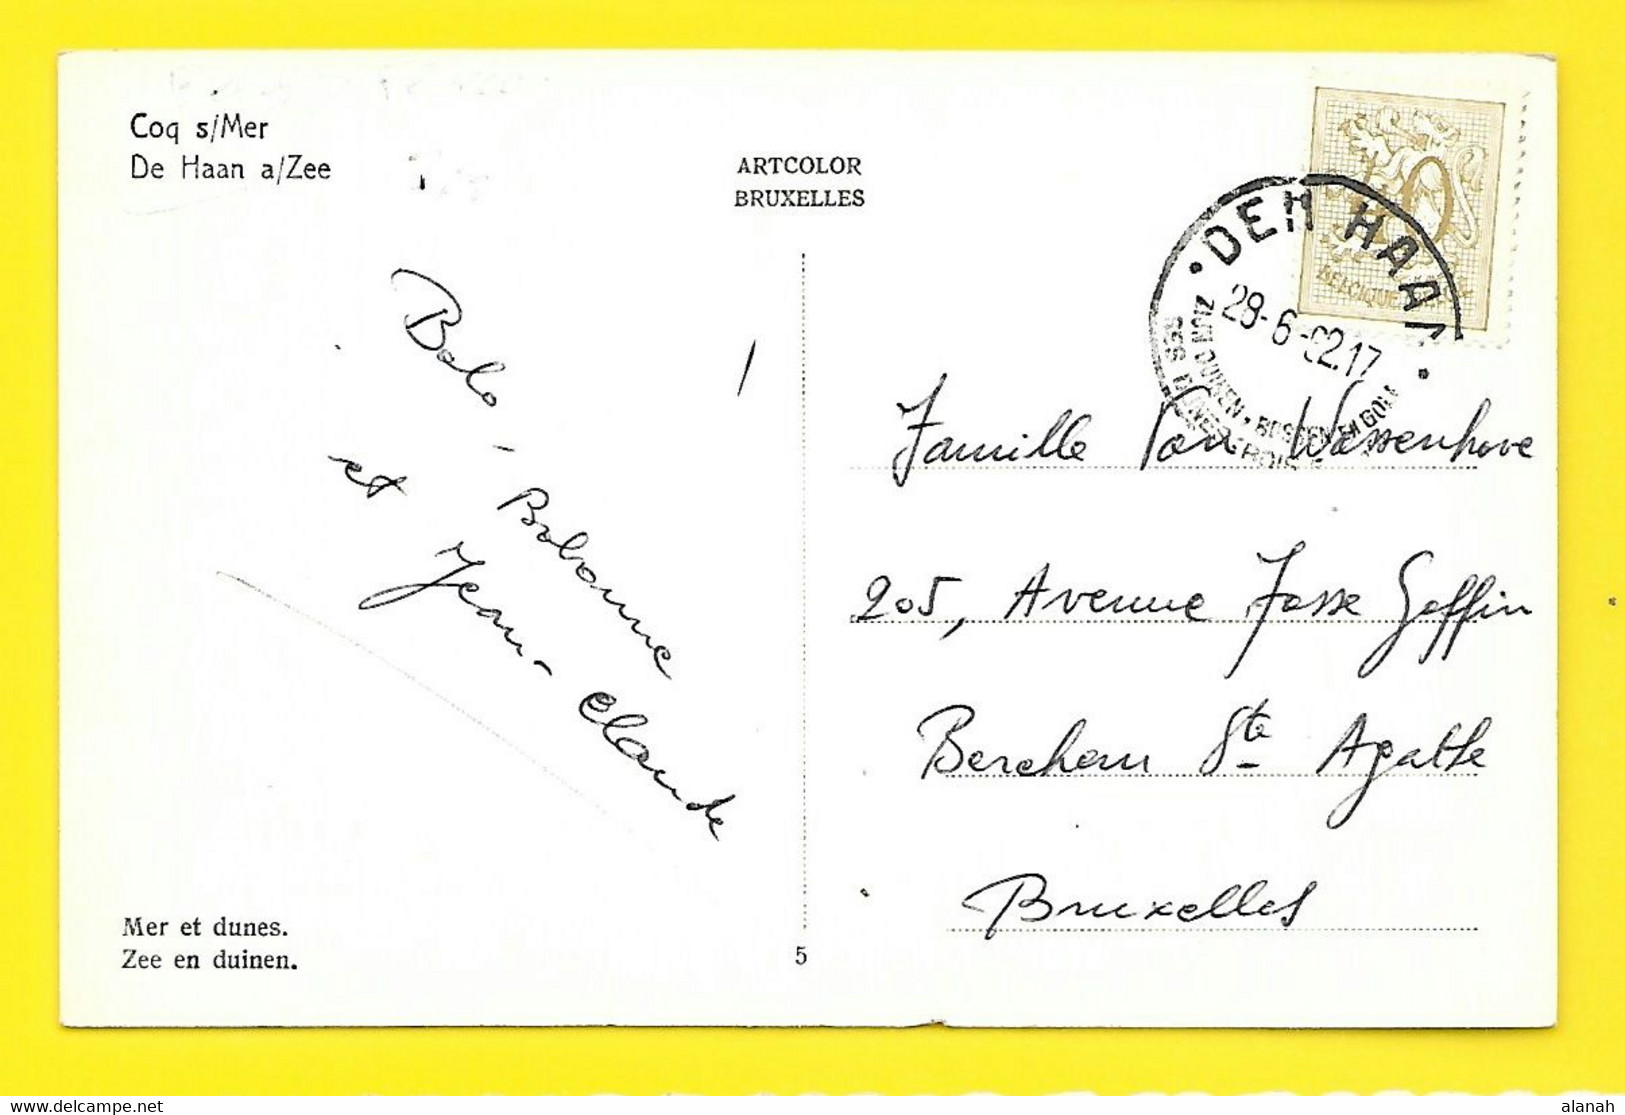 Coq s/Mer
De Haan a/Zee
ARTCOLOR
BRUXELLES
50
BELGIQUE
DEN HAAN
28-6-62.17
ZIJN DUINEN - BOSSEN EN GOLF
SES DUNES
Bolo, Bobonne
et Jean-Claude
Famille Van Wassenhove
205, Avenue Josse Goffin
Berchem Ste Agathe
Bruxelles
Mer et dunes.
Zee en duinen.
5
alanah